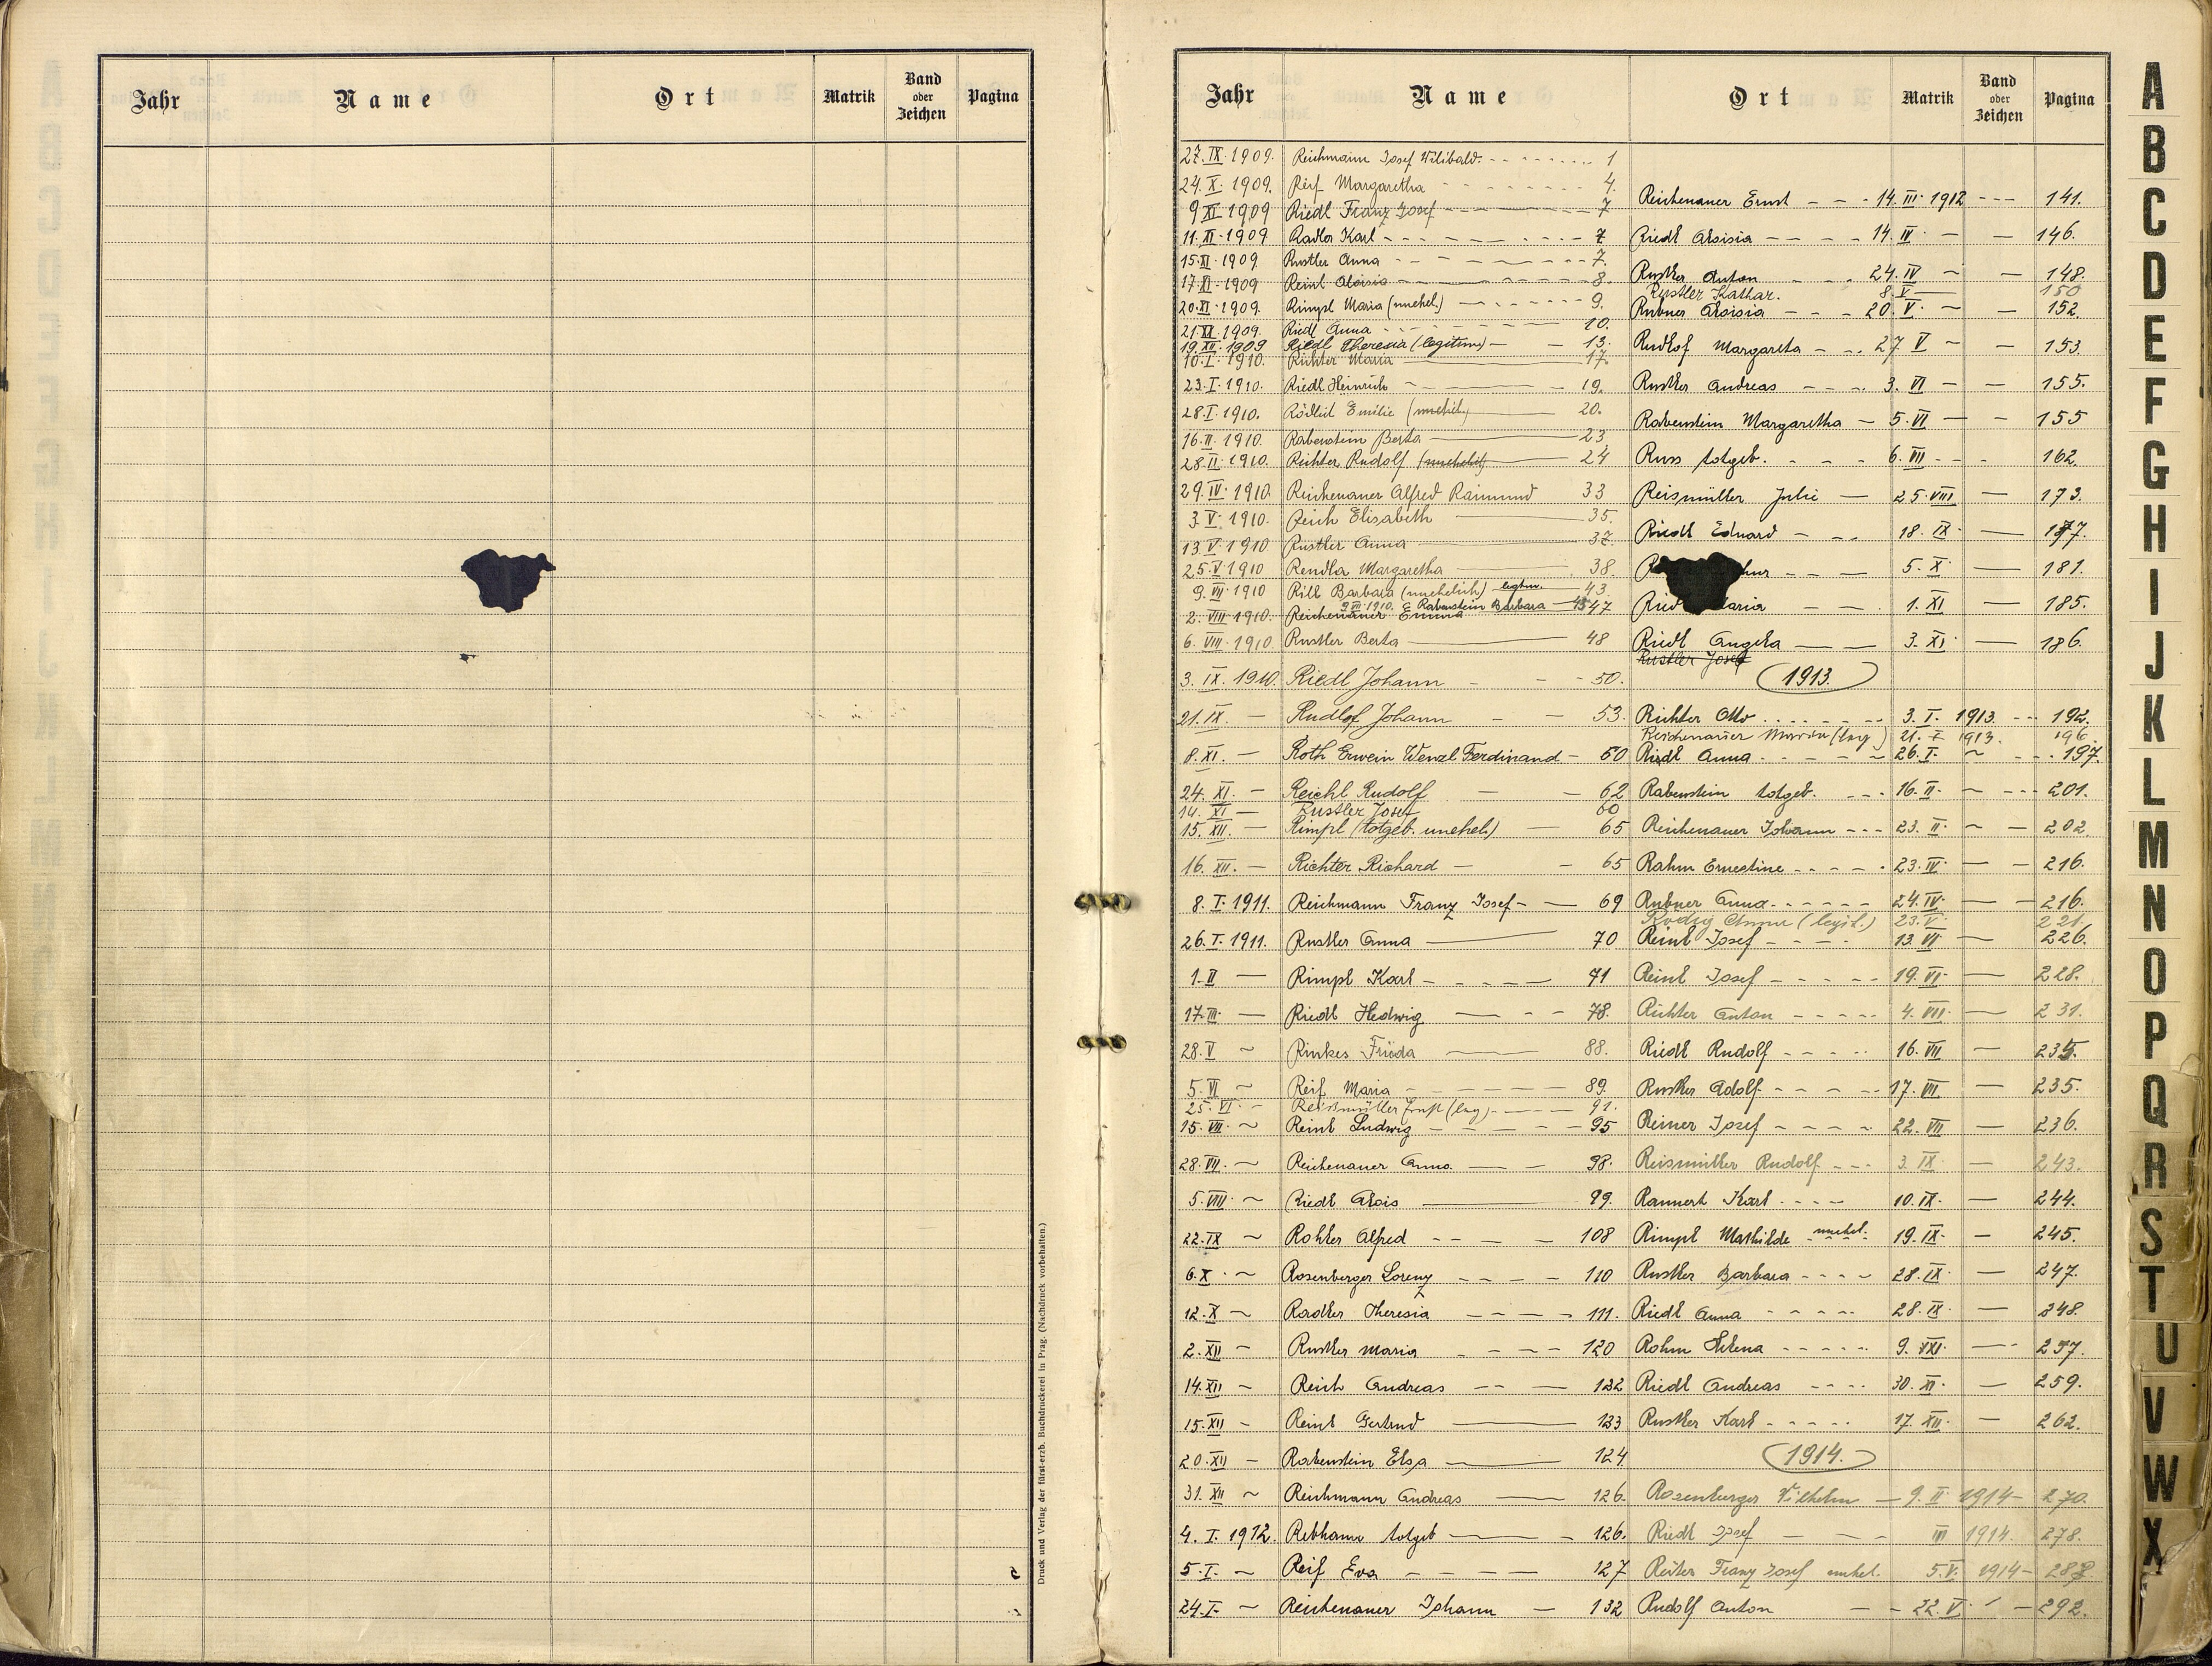 Jahr Name Ort Matrik Band oder Zeichen Pagina
Druck und Verlag der fürst-erzb. Buchdruckerei in Prag. (Nachdruck vorbehalten.)
Jahr Name Ort Matrik Band oder Zeichen Pagina
27. IX. 1909. Reichmann Josef Wilibald. 1
24. X. 1909. Reif Margaretha 4.
9 XI 1909 Riedl Franz Josef 7
11. XI. 1909 Radler Karl 7
15. XI. 1909. Rustler Anna 7.
17. XI. 1909 Reinl Aloisia 8.
20. XI. 1909. Rimpl Maria (unehel.) 9.
21. XI. 1909. Riedl Anna 10.
19. XII. 1909 Riedl Theresia (legitim) 13.
10. I. 1910. Richter Maria 17.
23. I. 1910. Riedl Heinrich 19.
28. I. 1910. Emilie (unehel.) 20.
16. II. 1910. Rabenstein Berta 23
28. II. 1910. Richter Rudolf (unehelich) 24
29. IV. 1910. Reichenauer Alfred Raimund 33
3. V. 1910. Reich Elisabeth 35.
13. V. 1910 Rustler Anna 37.
25. V. 1910 Rendla Margaretha 38.
9. VII 1910 Rill Barbara (unehelich) legtm. 43.
9. VII. 1910. Rabenstein Barbara
2. VIII 1910. Reichenauer Emma 47
6. VIII. 1910 Rustler Berta 48
3. IX. 1910. Riedl Johann 50.
21. IX. — Rudlof Johann 53.
8. XI. — Roth Erwein Wenzl Ferdinand 60
24. XI. — Reichl Rudolf 62
14. XI — Rustler Josef 60
15. XII. — Rimpl (totgeb. unehel.) 65
16. XII. — Richter Richard 65
8. I. 1911. Reichmann Franz Josef 69
26. I. 1911. Rustler Anna 70
1. II — Rimpl Karl 71
17. III. — Riedl Hedwig 78.
28. V ~ Rinkes Frieda 88.
5. VI ~ Reif Maria 89.
25. VI. — Reißmüller (leg) 91.
15. VII. ~ Reinl Ludwig 95
28. VII. ~ Reichenauer Anna 98.
5. VIII. ~ Riedl Alois 99.
22. IX ~ Rohler Alfred 108
6. X ~ Rosenberger Lorenz 110
12. X ~ Radler Theresia 111.
2. XII ~ Rustler Maria 120
14. XII ~ Reich Andreas 122
15. XII ~ Reinl Gertrud 123
20. XII — Rabenstein Elsa 124
31. XII ~ Reichmann Andreas 126.
4. I. 1912. Rebhann totgeb 126.
5. I. ~ Reif Eva 127
24. I. ~ Reichenauer Johann 132
Reichenauer Ernst 14. III. 1912 141.
Riedl Aloisia 14. IV. — 146.
Rustler Anton 24. IV ~ 148.
Rustler Kathar. 8. V 150
Rubner Aloisia 20. V. ~ 152.
Rudlof Margareta 27. V ~ 153.
Rustler Andreas 3. VI — 155.
Rabenstein Margaretha 5. VI — 155
Russ totgeb. 6. VII 162.
Reismüller Julie 25. VIII — 173.
Riedl Eduard 18. IX. — 177.
5. X. — 181.
Riedl Maria 1. XI — 185.
Riedl Angela 3. XI. — 186.
Rustler Josef
1913.
Richter Otto 3. I. 1913. 192.
Reichenauer Maria (leg.) 21. I 1913. 196.
Riedl Anna 26. I. ~ 197.
Rabenstein totgeb. 16. II. ~ 201.
Reichenauer Johann 23. II. ~ 202.
Rahm Ernestine 23. IV. — 216.
Rubner Anna 24. IV. — 216.
Anna (legit.) 23. V. 221.
Reinl Josef 13. VI — 226.
Reinl Josef 19. VI — 228.
Richter Anton 4. VII. — 231.
Riedl Rudolf 16. VII — 235.
Rustler Adolf 17. VII — 235.
Reiner Josef 22. VII — 236.
Reismüller Rudolf 3. IX. — 243.
Rannert Karl 10. IX. — 244.
Rimpl Mathilde unehel. 19. IX. — 245.
Rustler Barbara 28. IX. — 247.
Riedl Anna 28. IX. — 248.
Rohm Helena 9. XI. — 257.
Riedl Andreas 30. XI. — 259.
Rustler Karl 17. XII. — 262.
1914.
Rosenberger Wilhelm 9. II 1914 270.
Riedl Josef III 1914. 278.
Franz Josef unehel. 5. V. 1914
Rudolf Anton 22. V 292.
A
B
C
D
E
F
G
H
I
J
K
L
M
N
O
P
Q
R
S
T
U
V
W
X